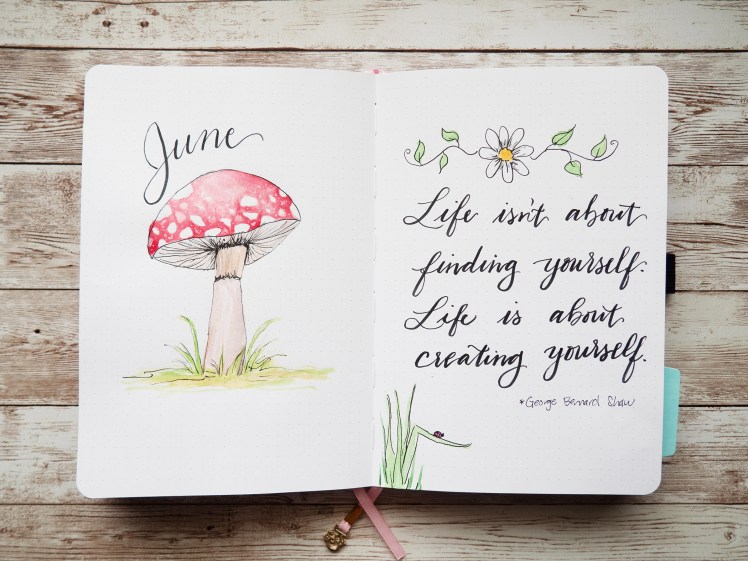 June
Life isn't about
finding yourself.
Life is about
creating yourself.
*George Bernard Shaw